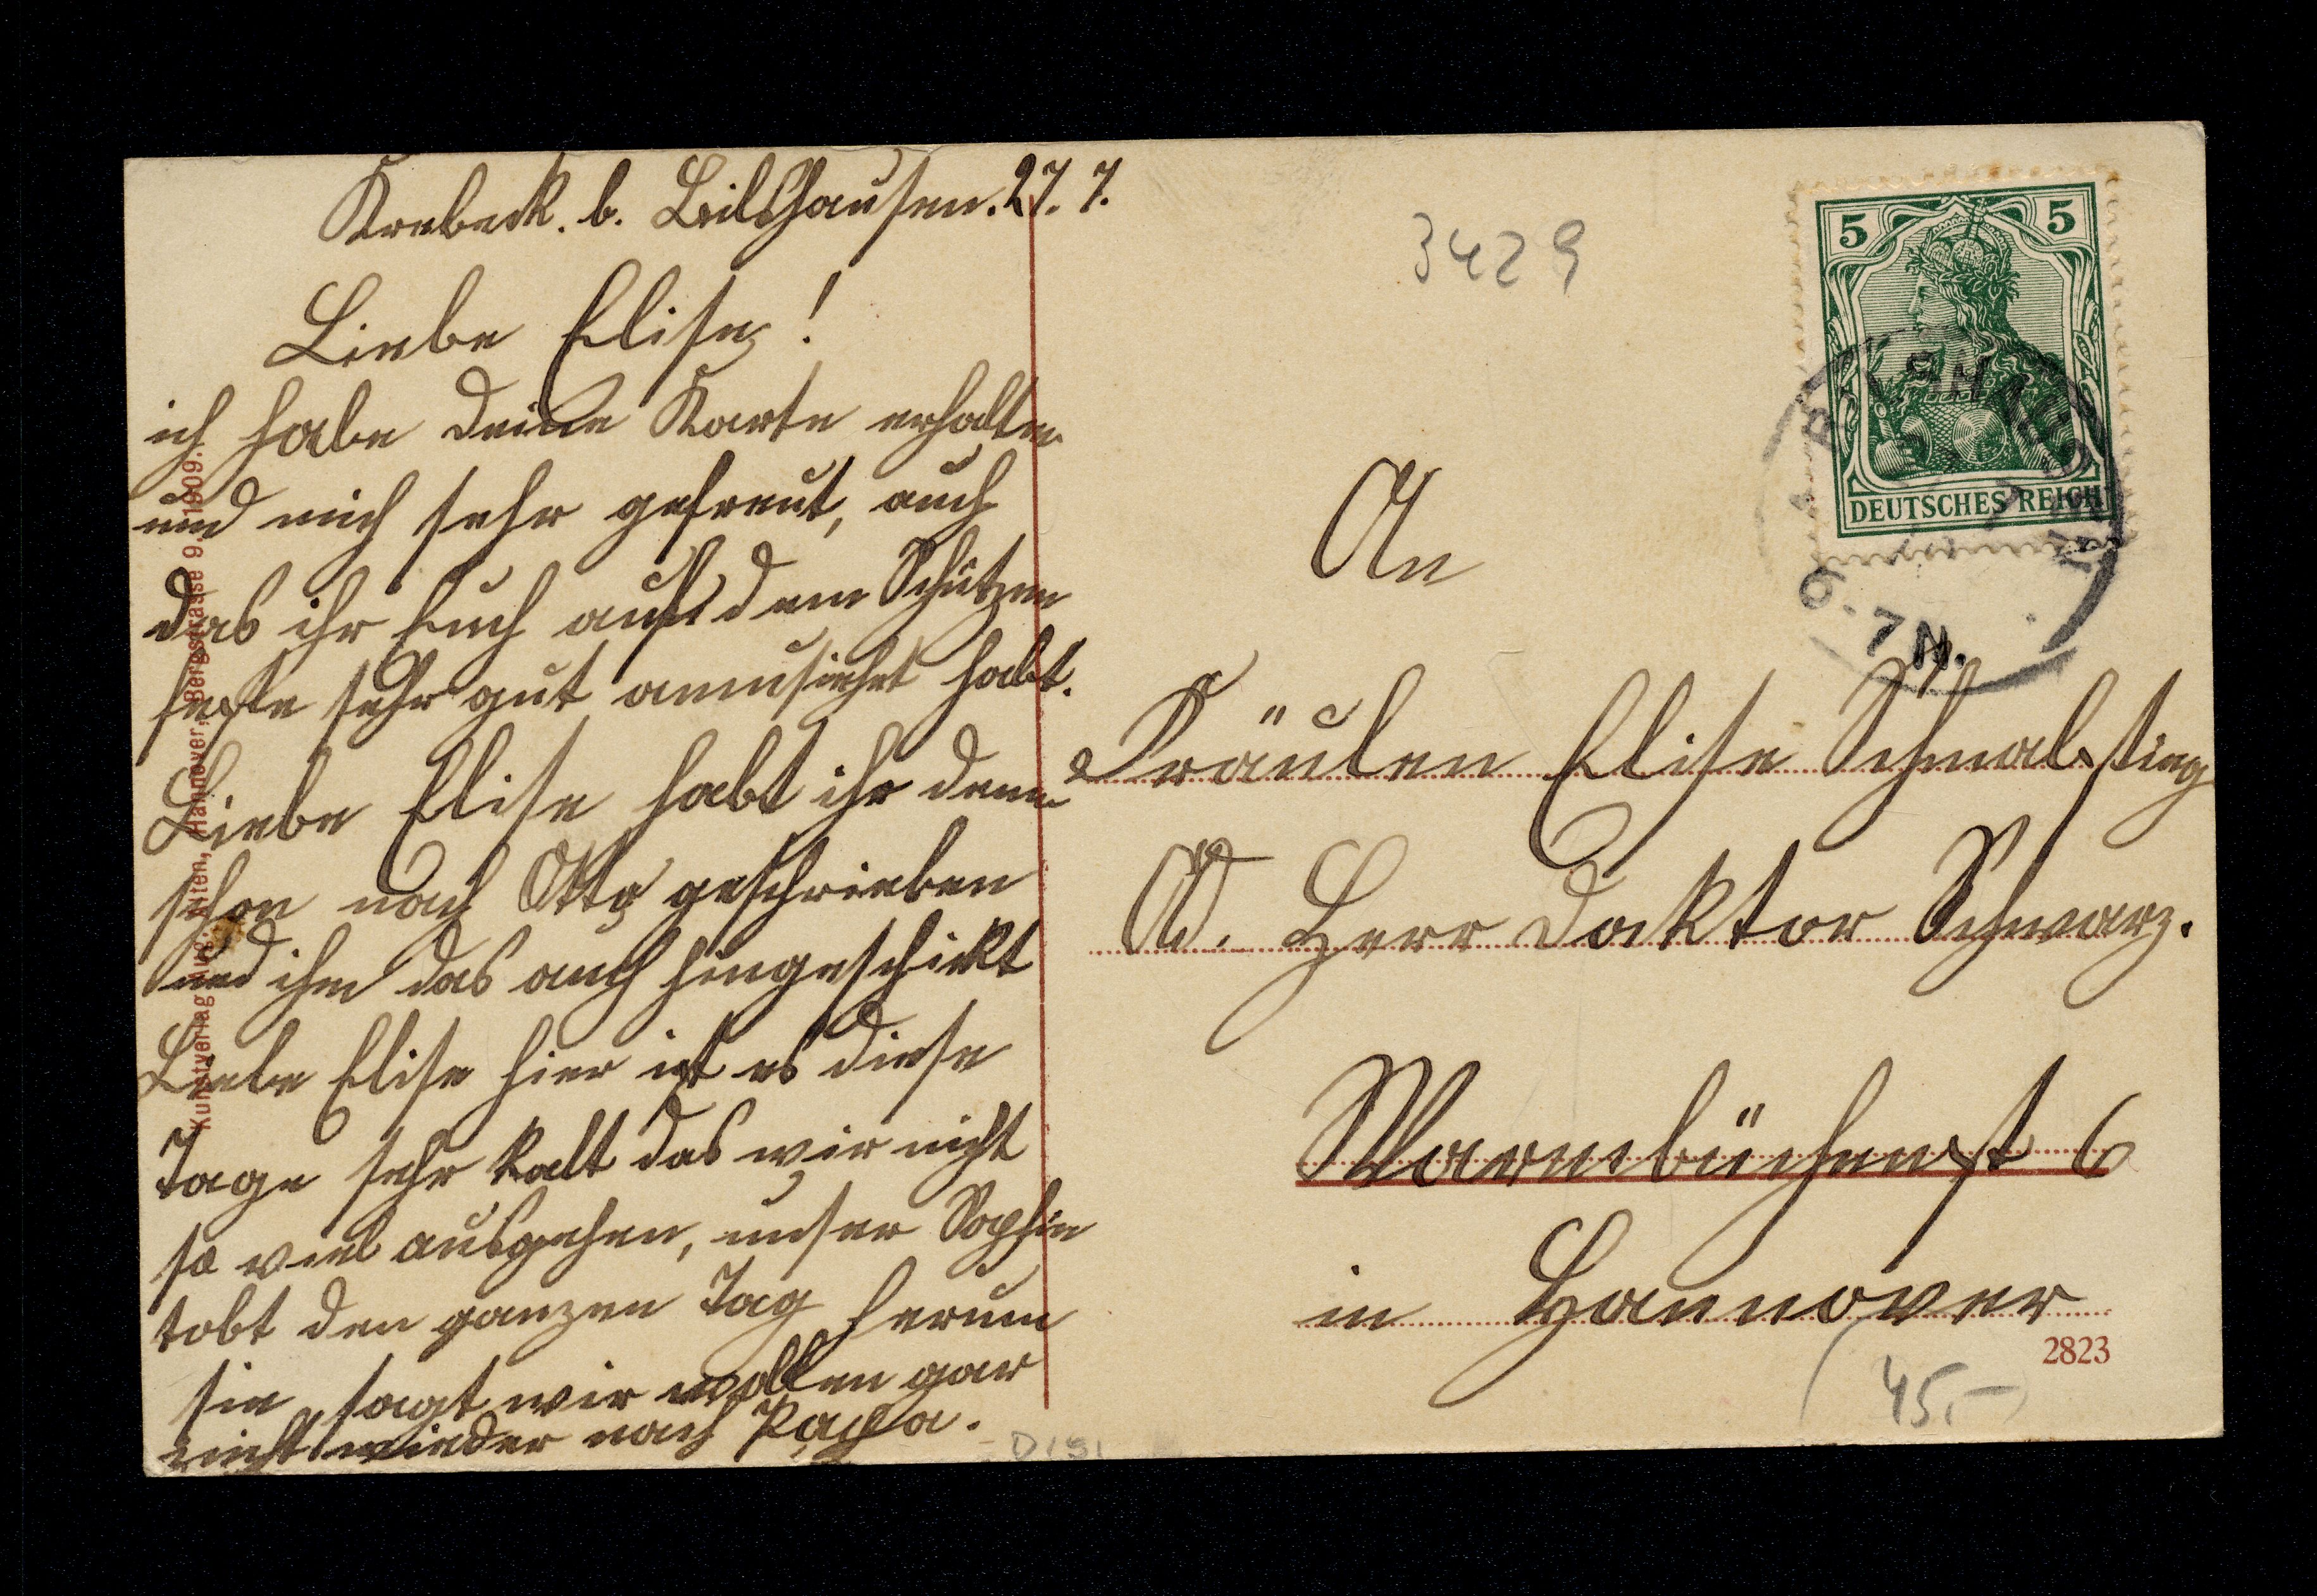 Krebeck. b. Bilshausen. 27. 7.
Liebe Elise!
ich habe deine Karte erhalten
und mich sehr gefreut, auch
das ihr Euch auf dem Schützen
feste sehr gut amusiehrt habt.
Liebe Elise habt ihr denn
schon nach Otto geschrieben
und ihm das auch hingeschickt
Liebe Elise hier ist es diese
Tage sehr kalt das wir nicht
so viel ausgehen, unser Sophie
tobt den ganzen Tag herum
sie sagt wir wollen gar
nicht wieder nach Papa.
Kunstverlag Aug. Hannover, Bergstrasse 9. 1909.
3429
5 5
DEUTSCHES REICH
7 N.
An
Fräulen Elise Schmalsting
Herr Doktor Schwarz.
Warmbüchenst 6
in Hannover
2823
45,-